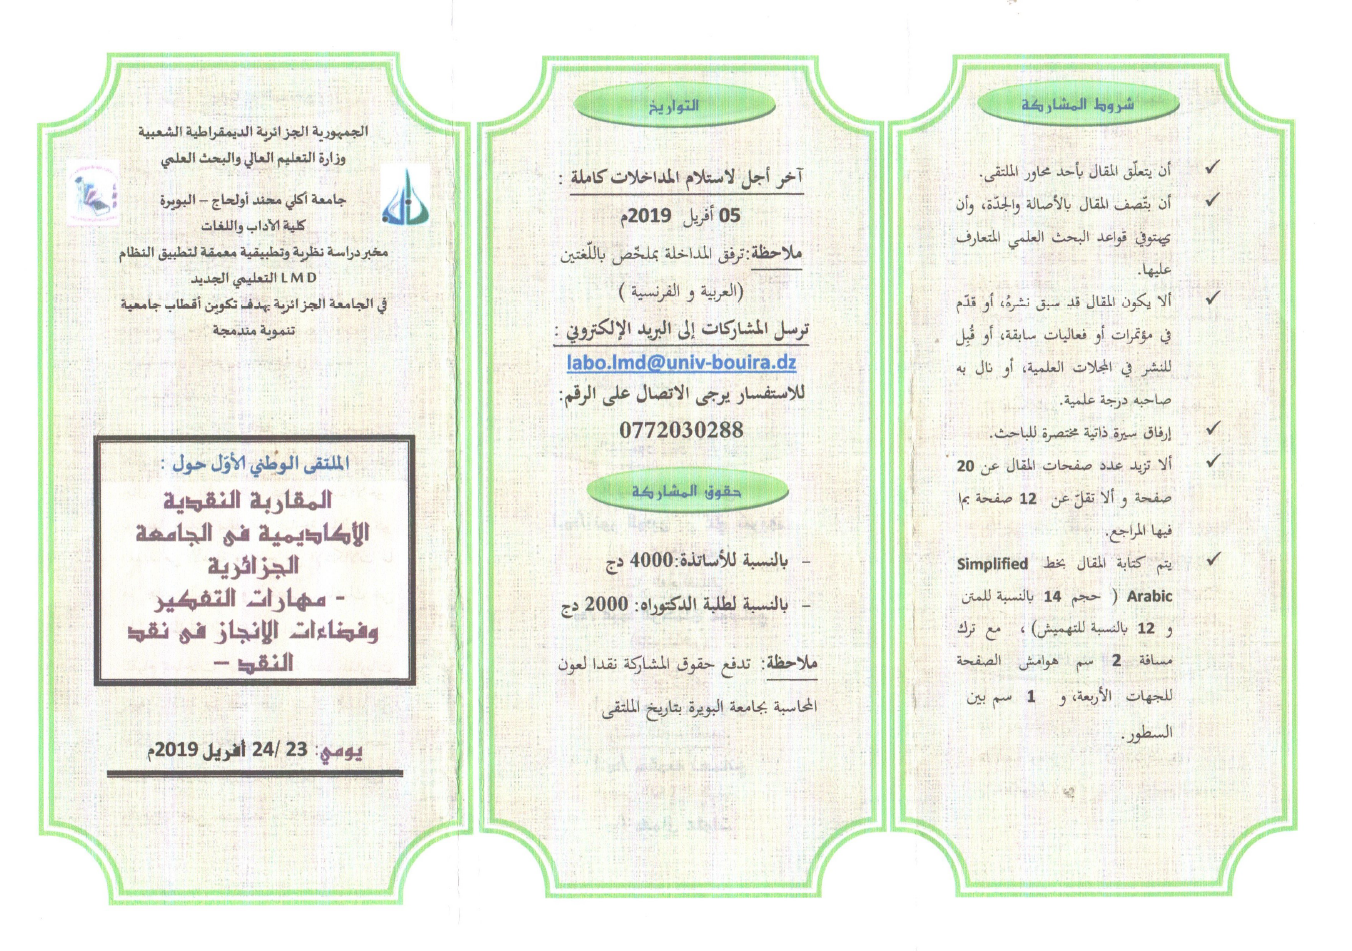 شروط المشاركة
✓ أن يتعلّق المقال بأحد محاور الملتقى.
✓ أن يتّصف المقال بالأصالة والجدّة، وأن
يستوفي قواعد البحث العلمي المتعارف
عليها.
✓ ألا يكون المقال قد سبق نشرهُ، أو قدّم
في مؤتمرات أو فعاليات سابقة، أو قُبِل
للنشر في المجلات العلمية، أو نال به
صاحبه درجة علمية.
✓ إرفاق سيرة ذاتية مختصرة للباحث.
✓ ألا تزيد عدد صفحات المقال عن 20
صفحة و ألا تقلّ عن 12 صفحة بما
فيها المراجع.
✓ يتم كتابة المقال بخط Simplified
Arabic ( حجم 14 بالنسبة للمتن
و 12 بالنسبة للتهميش) ، مع ترك
مسافة 2 سم هوامش الصفحة
للجهات الأربعة، و 1 سم بين
السطور.
التواريخ
آخر أجل لاستلام المداخلات كاملة :
05 أفريل 2019م
ملاحظة:ترفق المداخلة بملخّص باللّغتين
(العربية و الفرنسية )
ترسل المشاركات إلى البريد الإلكتروني :
labo.lmd@univ-bouira.dz
للاستفسار يرجى الاتصال على الرقم:
0772030288
حقوق المشاركة
- بالنسبة للأساتذة:4000 دج
- بالنسبة لطلبة الدكتوراه: 2000 دج
ملاحظة: تدفع حقوق المشاركة نقدا لعون
المحاسبة بجامعة البويرة بتاريخ الملتقى
الجمهورية الجزائرية الديمقراطية الشعبية
وزارة التعليم العالي والبحث العلمي
جامعة أكلي محند أولحاج – البويرة
كلية الآداب واللغات
مخبر دراسة نظرية وتطبيقية معمقة لتطبيق النظام
التعليمي الجديد LMD
في الجامعة الجزائرية بهدف تكوين أقطاب جامعية
تنموية مندمجة
الملتقى الوطني الأوّل حول :
المقاربة النقدية
الأكاديمية في الجامعة
الجزائرية
- مهارات التفكير
وفضاءات الإنجاز في نقد
النقد –
يومي: 23 /24 أفريل 2019م